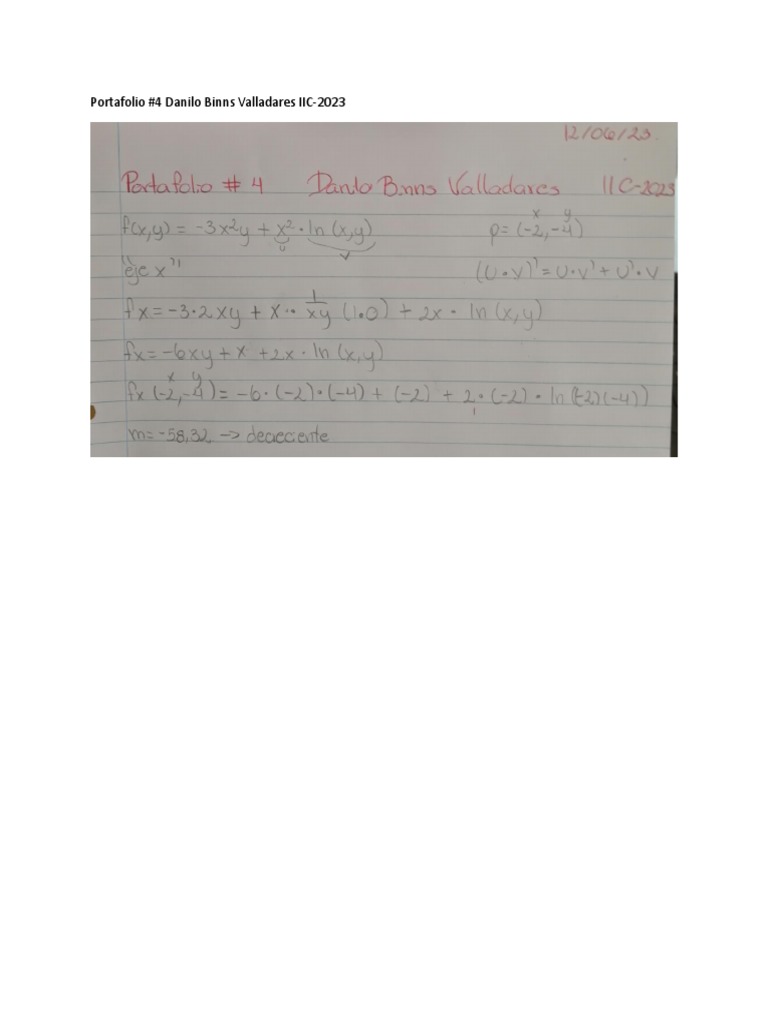 Portafolio #4 Danilo Binns Valladares IIC-2023
12/06/23.
Portafolio # 4 Danilo Binns Valladares IIC-2023
f(x,y) = -3x²y + x² · ln (x,y) p= (-2,-4)
x y
u v
"eje x" (U·V)' = U·V' + U'·V
fx = -3·2xy + x² · 1/xy (1·0) + 2x · ln (x,y)
fx = -6xy + x + 2x · ln (x,y)
x y
fx (-2,-4) = -6·(-2)·(-4) + (-2) + 2·(-2)·ln((-2)(-4))
m= -58,32 -> decreciente